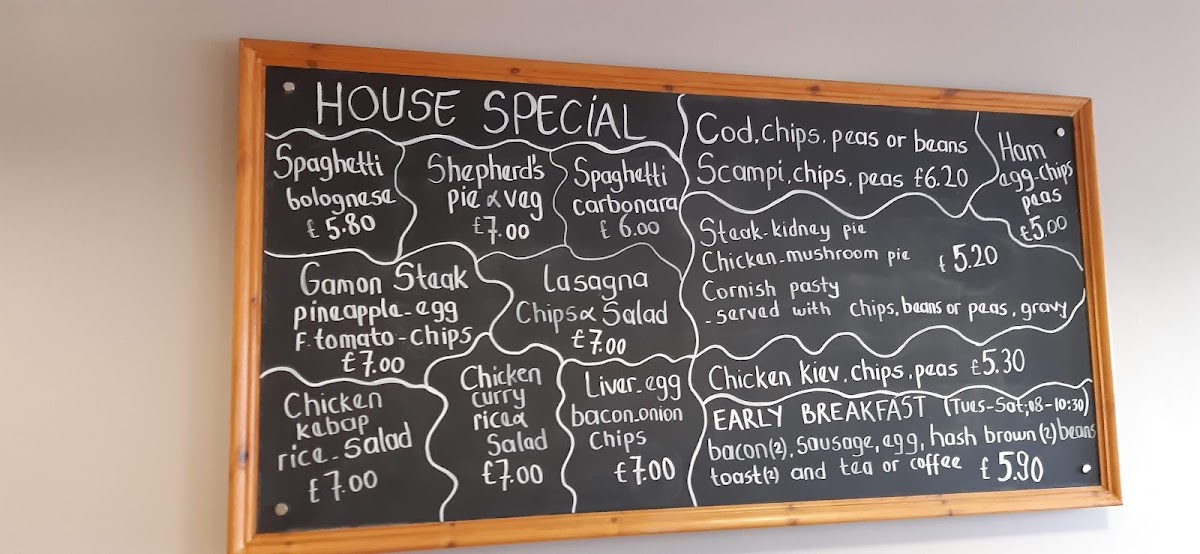 HOUSE SPECIAL
Spaghetti
bolognese
£ 5.80
Shepherd's
pie & veg
£7.00
Spaghetti
carbonara
£ 6.00
Gamon Steak
pineapple-egg
F.tomato-chips
£7.00
Lasagna
Chips & Salad
£7.00
Chicken
kebap
rice-Salad
£7.00
Chicken
curry
rice &
Salad
£7.00
Liver-egg
bacon-onion
Chips
£7.00
Cod, chips, peas or beans
Scampi, chips, peas £6.20
Ham
egg-chips
peas
£5.00
Steak-kidney pie
Chicken-mushroom pie £5.20
Cornish pasty
-served with chips, beans or peas, gravy
Chicken kiev, chips, peas £5.30
EARLY BREAKFAST (Tues-Sat;08-10:30)
bacon(2), sausage, egg, hash brown(2) beans
toast(2) and tea or coffee £5.90